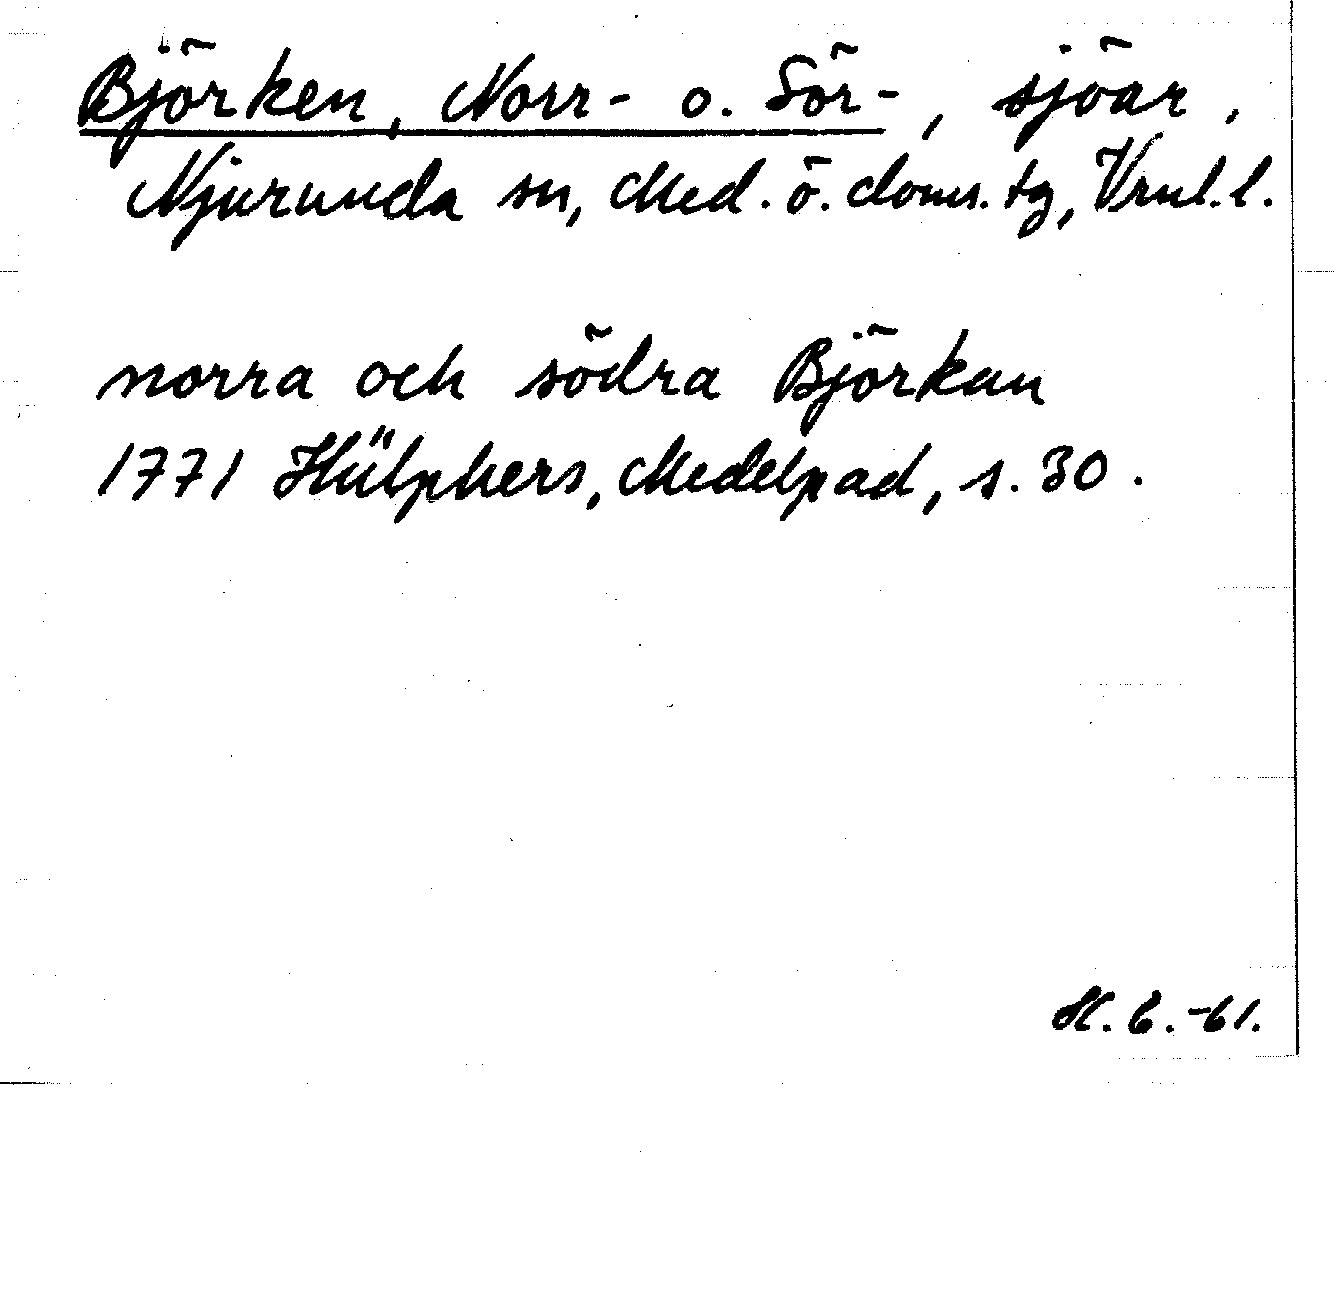 Björken, Norr- o. Sör-, sjöar,
Njurunda sn, Med. ö. doms. tg, Vrnl. l.
norra och södra Björkan
1771 Hülphers, Medelpad, s. 30.
H. C. -61.